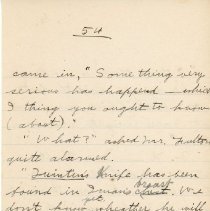 54
came in, "Something very
serious has happend — which
I thing you ought to know
(about)."
"What?" asked Mr. Fulton
quite alarmed.
"Quinten's Knife has been
found in Iwans breast. We
yet
don't know wheather he will